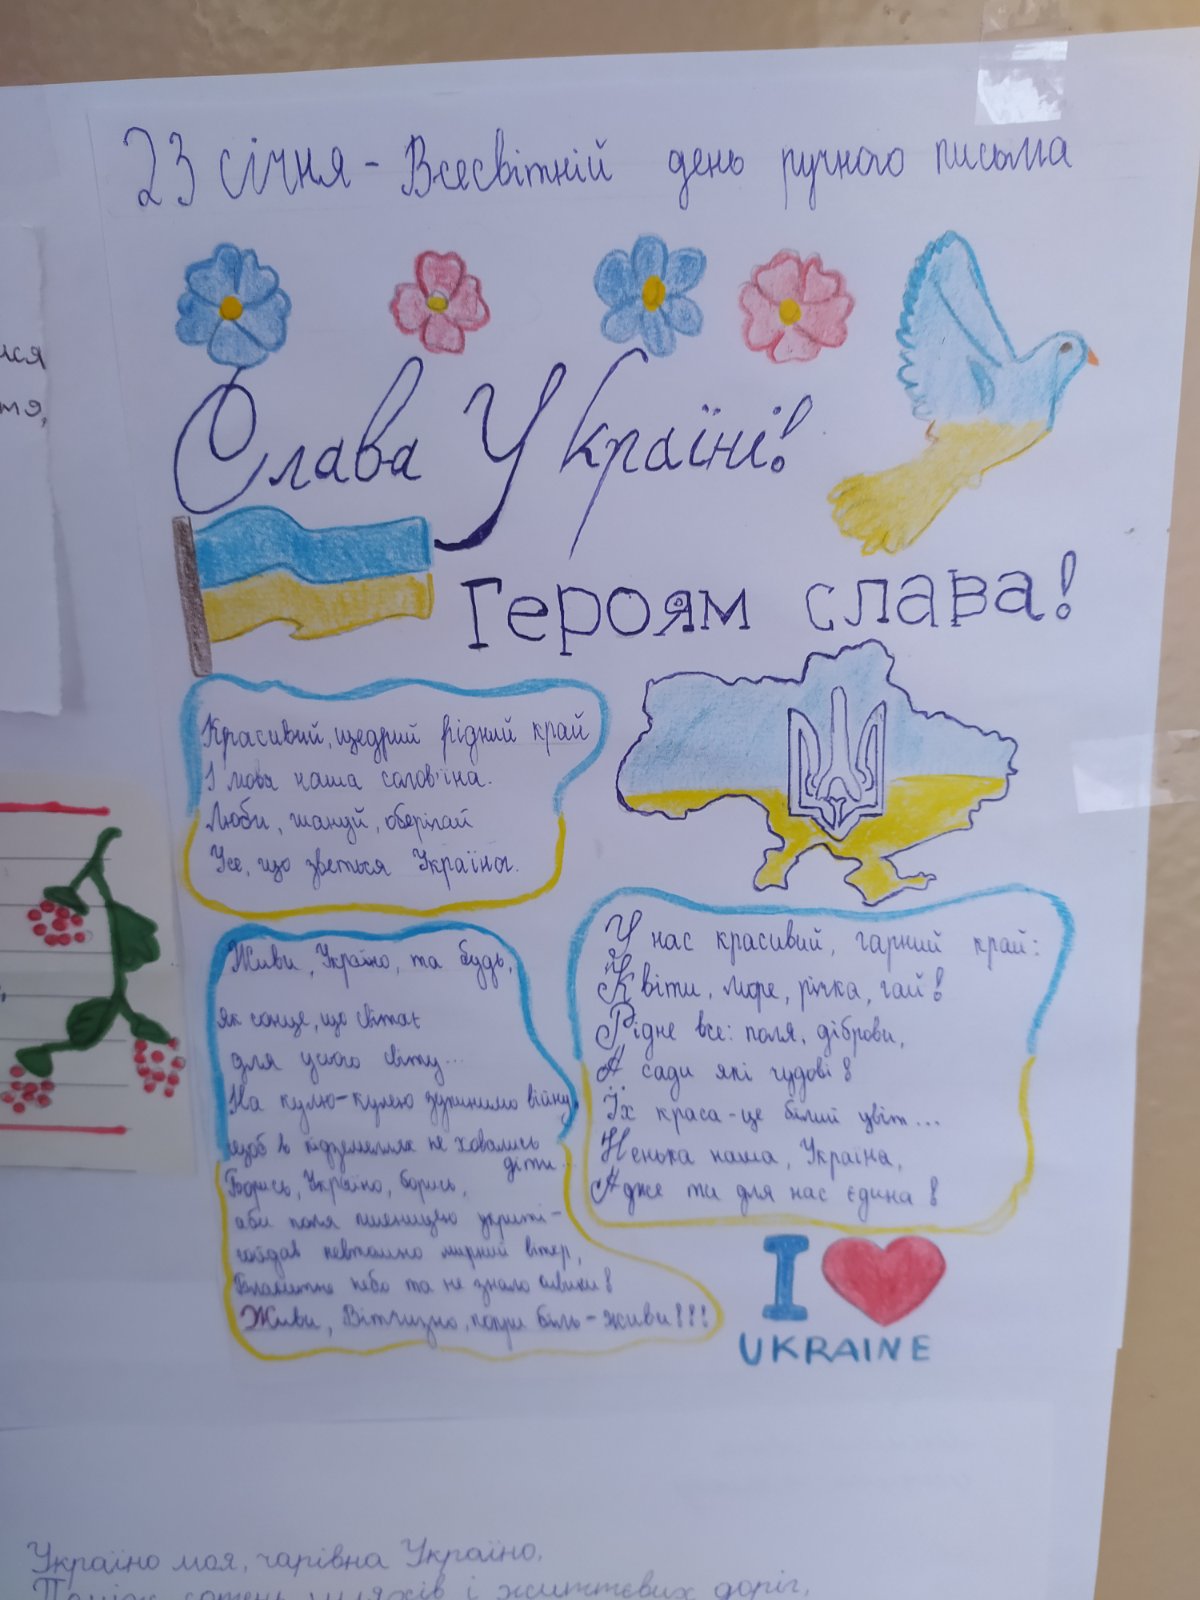 23 січня - Всесвітній день ручного письма
Слава Україні!
Героям слава!
Красивий, щедрий рідний край
І мова наша солов'їна.
Люби, шануй, оберігай
Усе, що зветься Україна.
Живи, Україно, та будь,
як сонце, що світає
для усього світу...
На кулю-кулею зупинимо війну,
щоб в підземеллях не ховались
діти...
Борись, Україно, борись,
аби поля пшеницею укриті-
гойдав невтомно мирний вітер,
Блакитне небо та не знало
Живи, Вітчизно, попри біль-живи!!!
У нас красивий, гарний край:
Квіти, море, річка, гай!
Рідне все: поля, діброви,
А сади які чудові!
Їх краса-це білий цвіт...
Ненька наша, Україна,
Адже ти для нас єдина!
I
UKRAINE
Україно моя, чарівна Україно,
сотень шляхів і життєвих доріг,